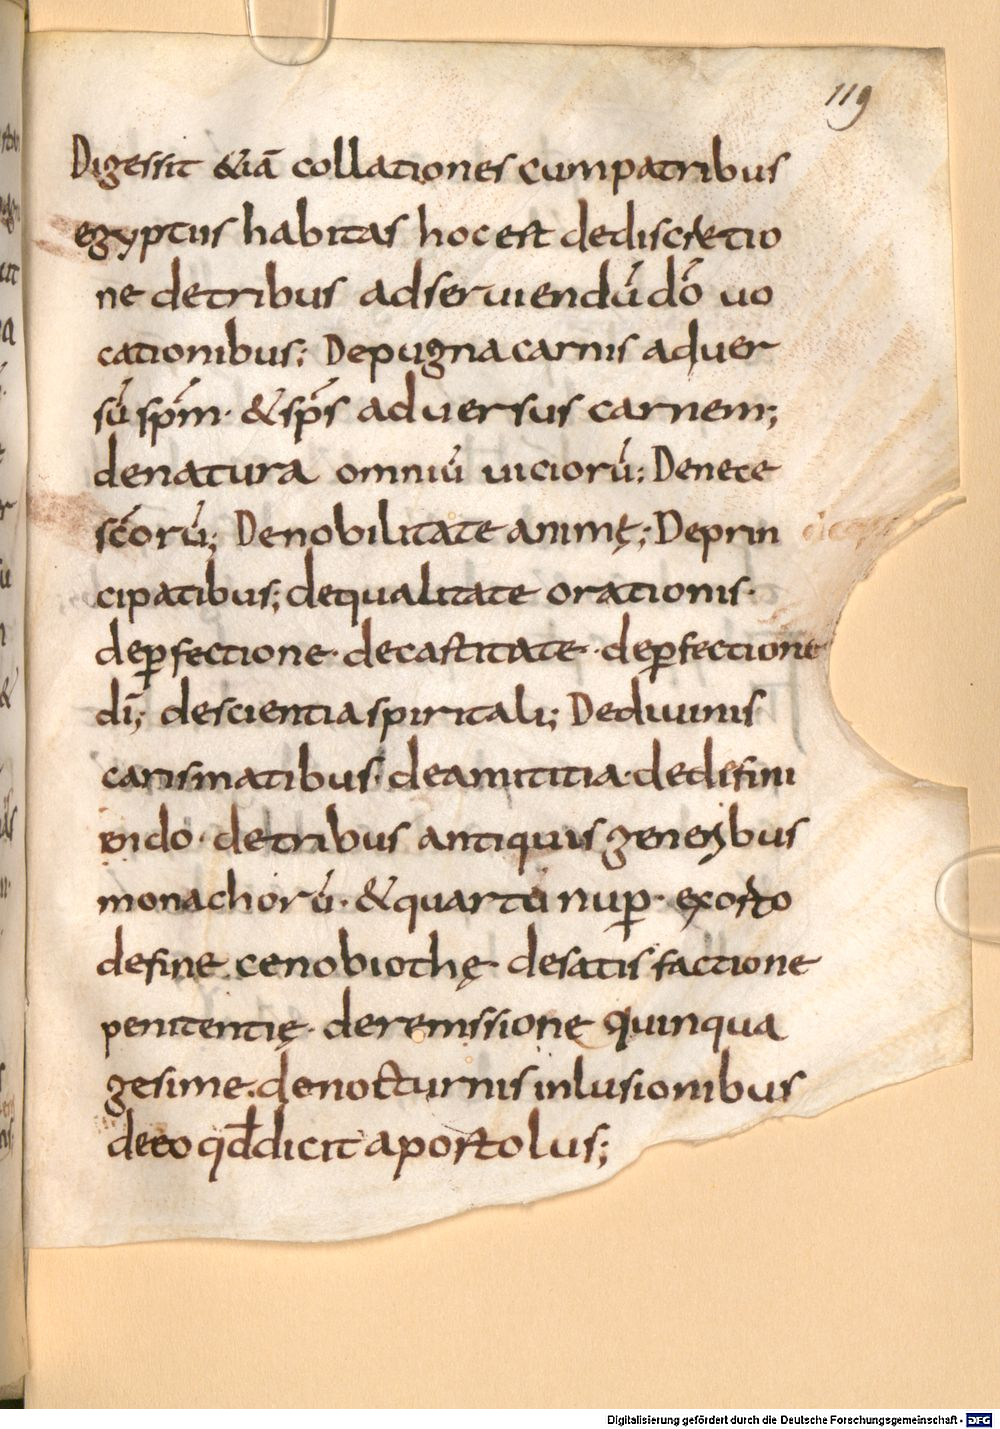 119
Digessit &iā collationes cumpatribus
egyptiis habitas hocest dediscretio
ne detribus adseruiendū dō uo
cationibus; Depugna carnis aduer
sū spm̄· & sps̄ aduersus carnem;
denatura omniū uiciorū; Denece
scōrū; Denobilitate animę; Deprin
cipatibus; dequalitate orationis·
deꝑfectione· decastitate· deꝑfectione
dī; descientia spiritali; Dediuinis
carismatibus· deamititia· dedefini
endo· detribus antiquis generibus
monachorū· & quartū nuꝑ· exorto
define cenobiothę· desatisfactione
penitentię· deremissione quinqua
gesime. denocturnis inlusionibus
deeo qđ dicit apostolus;
Digitalisierung gefördert durch die Deutsche Forschungsgemeinschaft - DFG